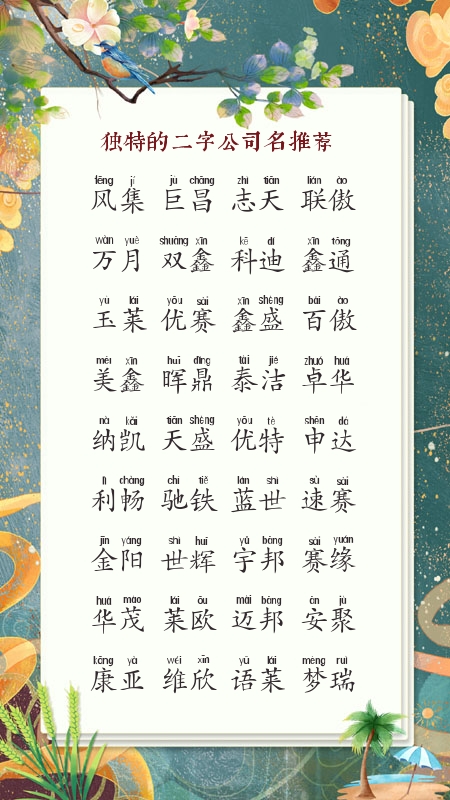 独特的二字公司名推荐
fēng jí jù chāng zhì tiān lián ào
风集 巨昌 志天 联傲
wàn yuè shuāng xīn kē dí xīn tōng
万月 双鑫 科迪 鑫通
yù lái yōu sài xīn shéng bǎi ào
玉莱 优赛 鑫盛 百傲
měi xīn huī dǐng tài jié zhuó huá
美鑫 晖鼎 泰洁 卓华
nà kǎi tiān shéng yōu tè shēn dá
纳凯 天盛 优特 申达
lì chàng chí tiě lán shì sù sài
利畅 驰铁 蓝世 速赛
jīn yáng shì huī yǔ bāng sài yuán
金阳 世辉 宇邦 赛缘
huá mào lái ōu mài bāng ān jù
华茂 莱欧 迈邦 安聚
kāng yà wéi xīn yǔ lái mèng ruì
康亚 维欣 语莱 梦瑞